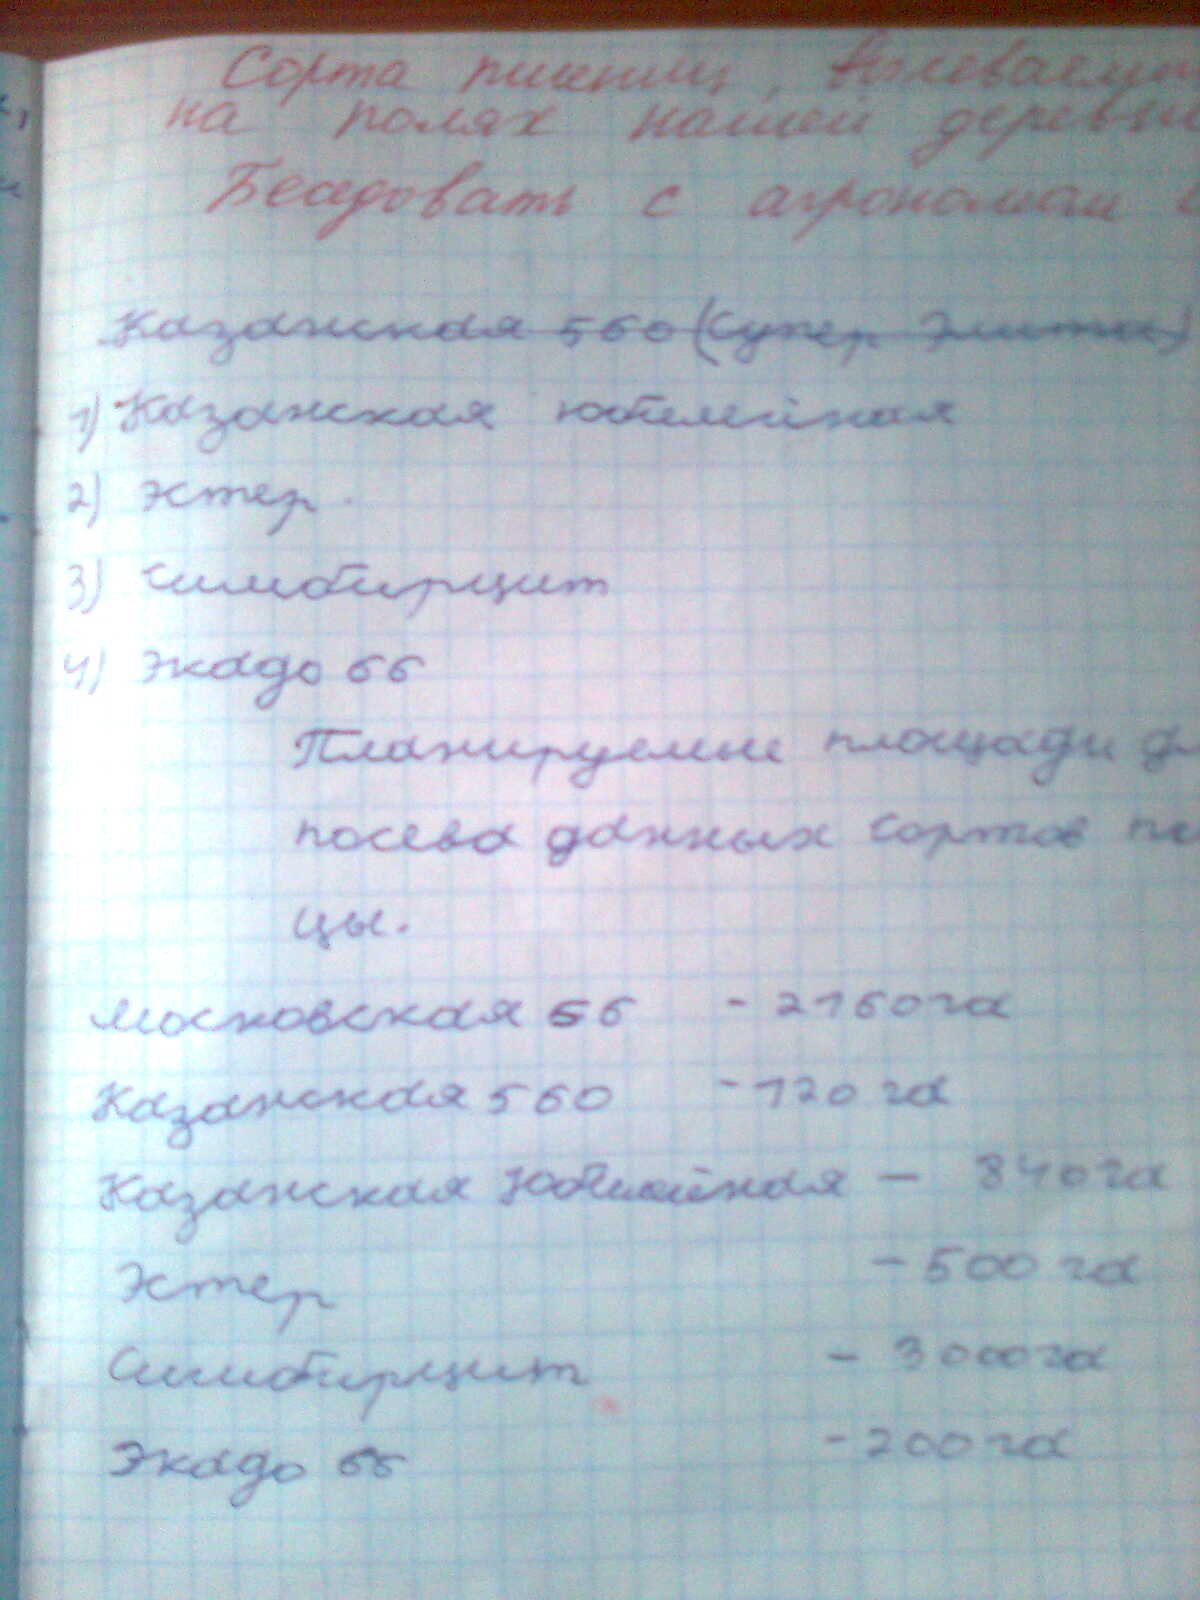 Сорта пшениц, высеваемых
на полях нашей деревни
Беседовать с агрономам
Казанская 560 (Супер Элита)
1) Казанская юбилейная
2) Эстер.
3) Симбирцит
4) Экадо 66
Планируемые площади дл
посева данных сортов
цы.
Московская 56 - 2160 га
Казанская 560 - 120 га
Казанская Юбилейная - 840 га
Эстер - 500 га
Симбирцит - 3000 га
Экадо 66 - 200 га